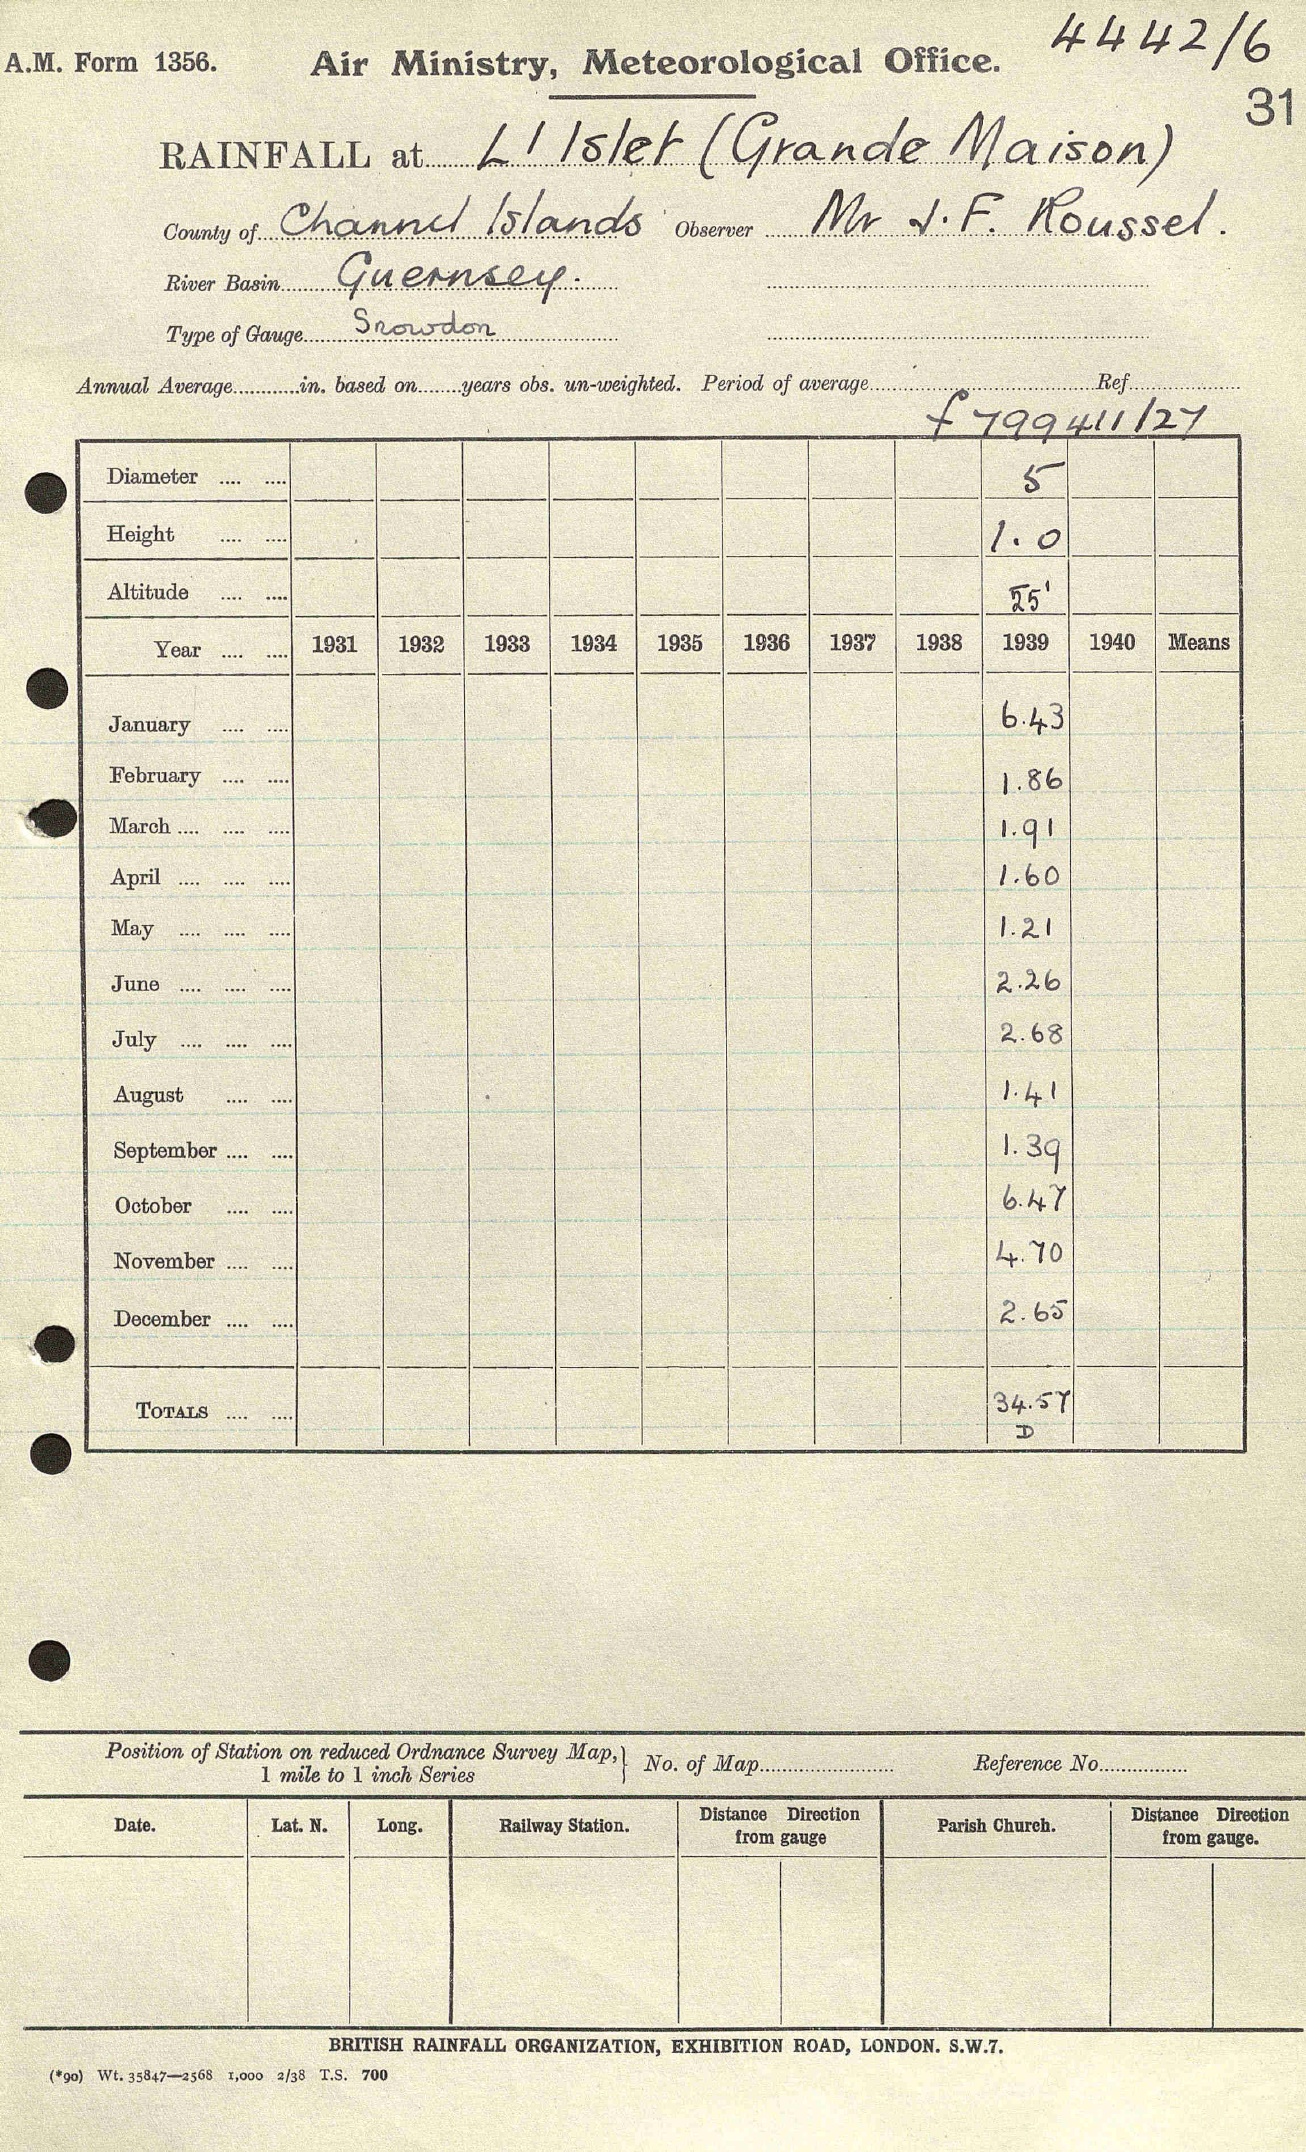 4442/6
A.M. Form 1356. Air Ministry, Meteorological Office.
31
RAINFALL at L'Islet (Grande Maison)
County of Channel Islands Observer Mr J. F. Roussel.
River Basin Guernsey.
Type of Gauge Snowdon
Annual Average............in. based on.......years obs. un-weighted. Period of average.......................................Ref....................
f 799411/27
Diameter .... .... 5
Height .... .... 1.0
Altitude .... .... 25'
Year .... .... 1931 1932 1933 1934 1935 1936 1937 1938 1939 1940 Means
January .... .... 6.43
February .... .... 1.86
March .... .... .... 1.91
April .... .... .... 1.60
May .... .... .... 1.21
June .... .... .... 2.26
July .... .... .... 2.68
August .... .... 1.41
September .... .... 1.39
October .... .... 6.47
November .... .... 4.70
December .... .... 2.65
TOTALS .... .... 34.57
D
Position of Station on reduced Ordnance Survey Map,} No. of Map........................ Reference No................
1 mile to 1 inch Series
Date. Lat. N. Long. Railway Station. Distance Direction from gauge Parish Church. Distance Direction from gauge.
BRITISH RAINFALL ORGANIZATION, EXHIBITION ROAD, LONDON. S.W.7.
(*90) Wt. 35847—2568 1,000 2/38 T.S. 700